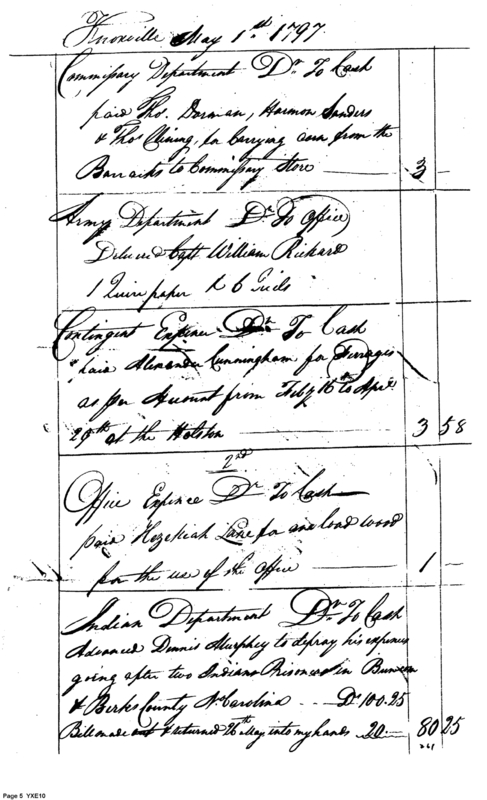 Knoxville May 1st 1797
Commissary Department Dr To Cash
paid Thos. Dorman, Harmon Sanders
& Thos for Carrying corn from the
Barracks to Commissary Store 3
Army Department Dr To Office
Delivered Capt William Rickard
1 Quire paper & 6 Quils
Contingent Expence Dr To Cash
paid Alexander Cunningham for Ferrages
as per Account from Feby 16th to Apr
29th at the Holston 3 58
2nd
Office Expence Dr To Cash
paid Hezekiah Lane for one load wood
for the use of the office 1
Indian Department Dr To Cash
Advanced Dennis Murphey to defray his expences
going after two Indians Prisoners in Buncom
& Berks County No Carolina Ds 100.25
Bill made out & returned 26th May into my hands 20 80 25
Page 5 YXE10